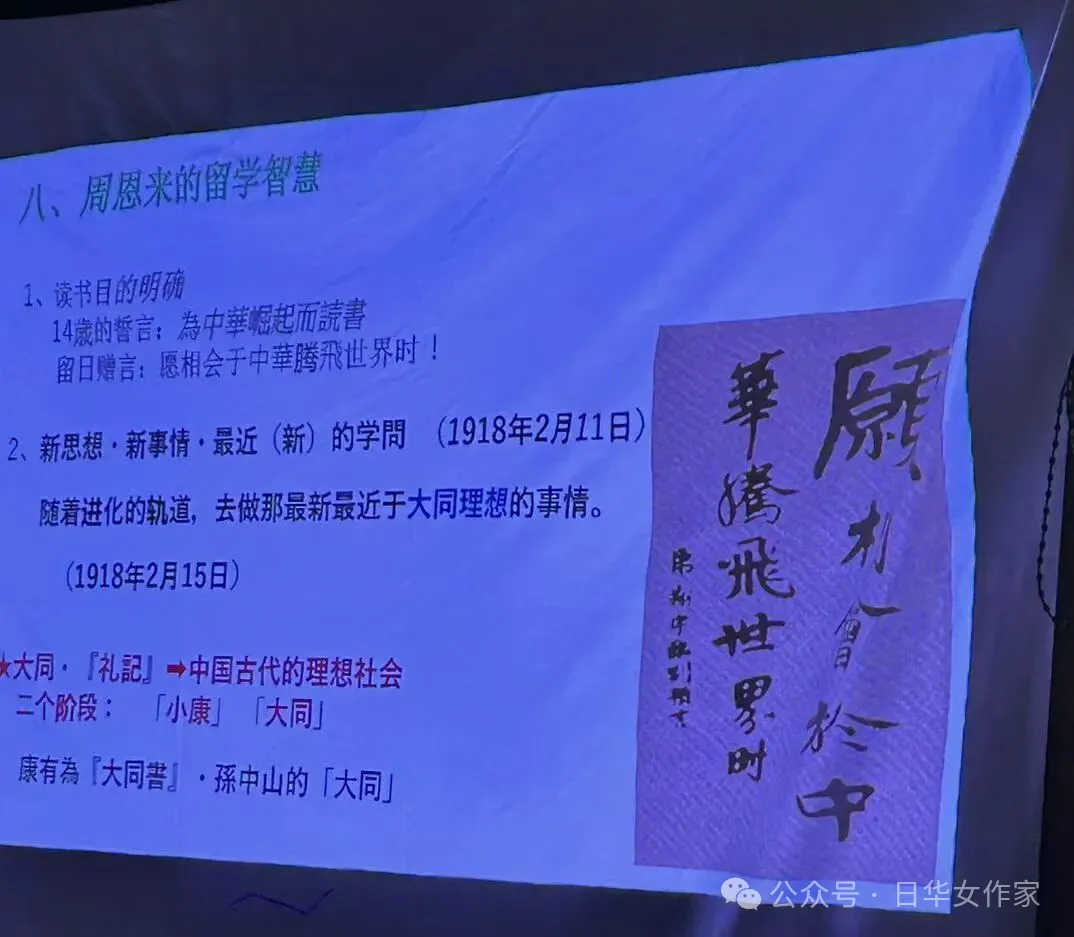 八、周恩来的留学智慧
1、读书目的明确
14歳的誓言：為中華崛起而読書
留日赠言：愿相会于中華腾飛世界时！
2、新思想・新事情・最近（新）的学問 （1918年2月11日）
随着进化的轨道，去做那最新最近于大同理想的事情。
（1918年2月15日）
★大同・『礼記』➡中国古代的理想社会
二个阶段：「小康」「大同」
康有為『大同書』・孫中山的「大同」
願相會於中
華騰飛世界时
公众号・日华女作家